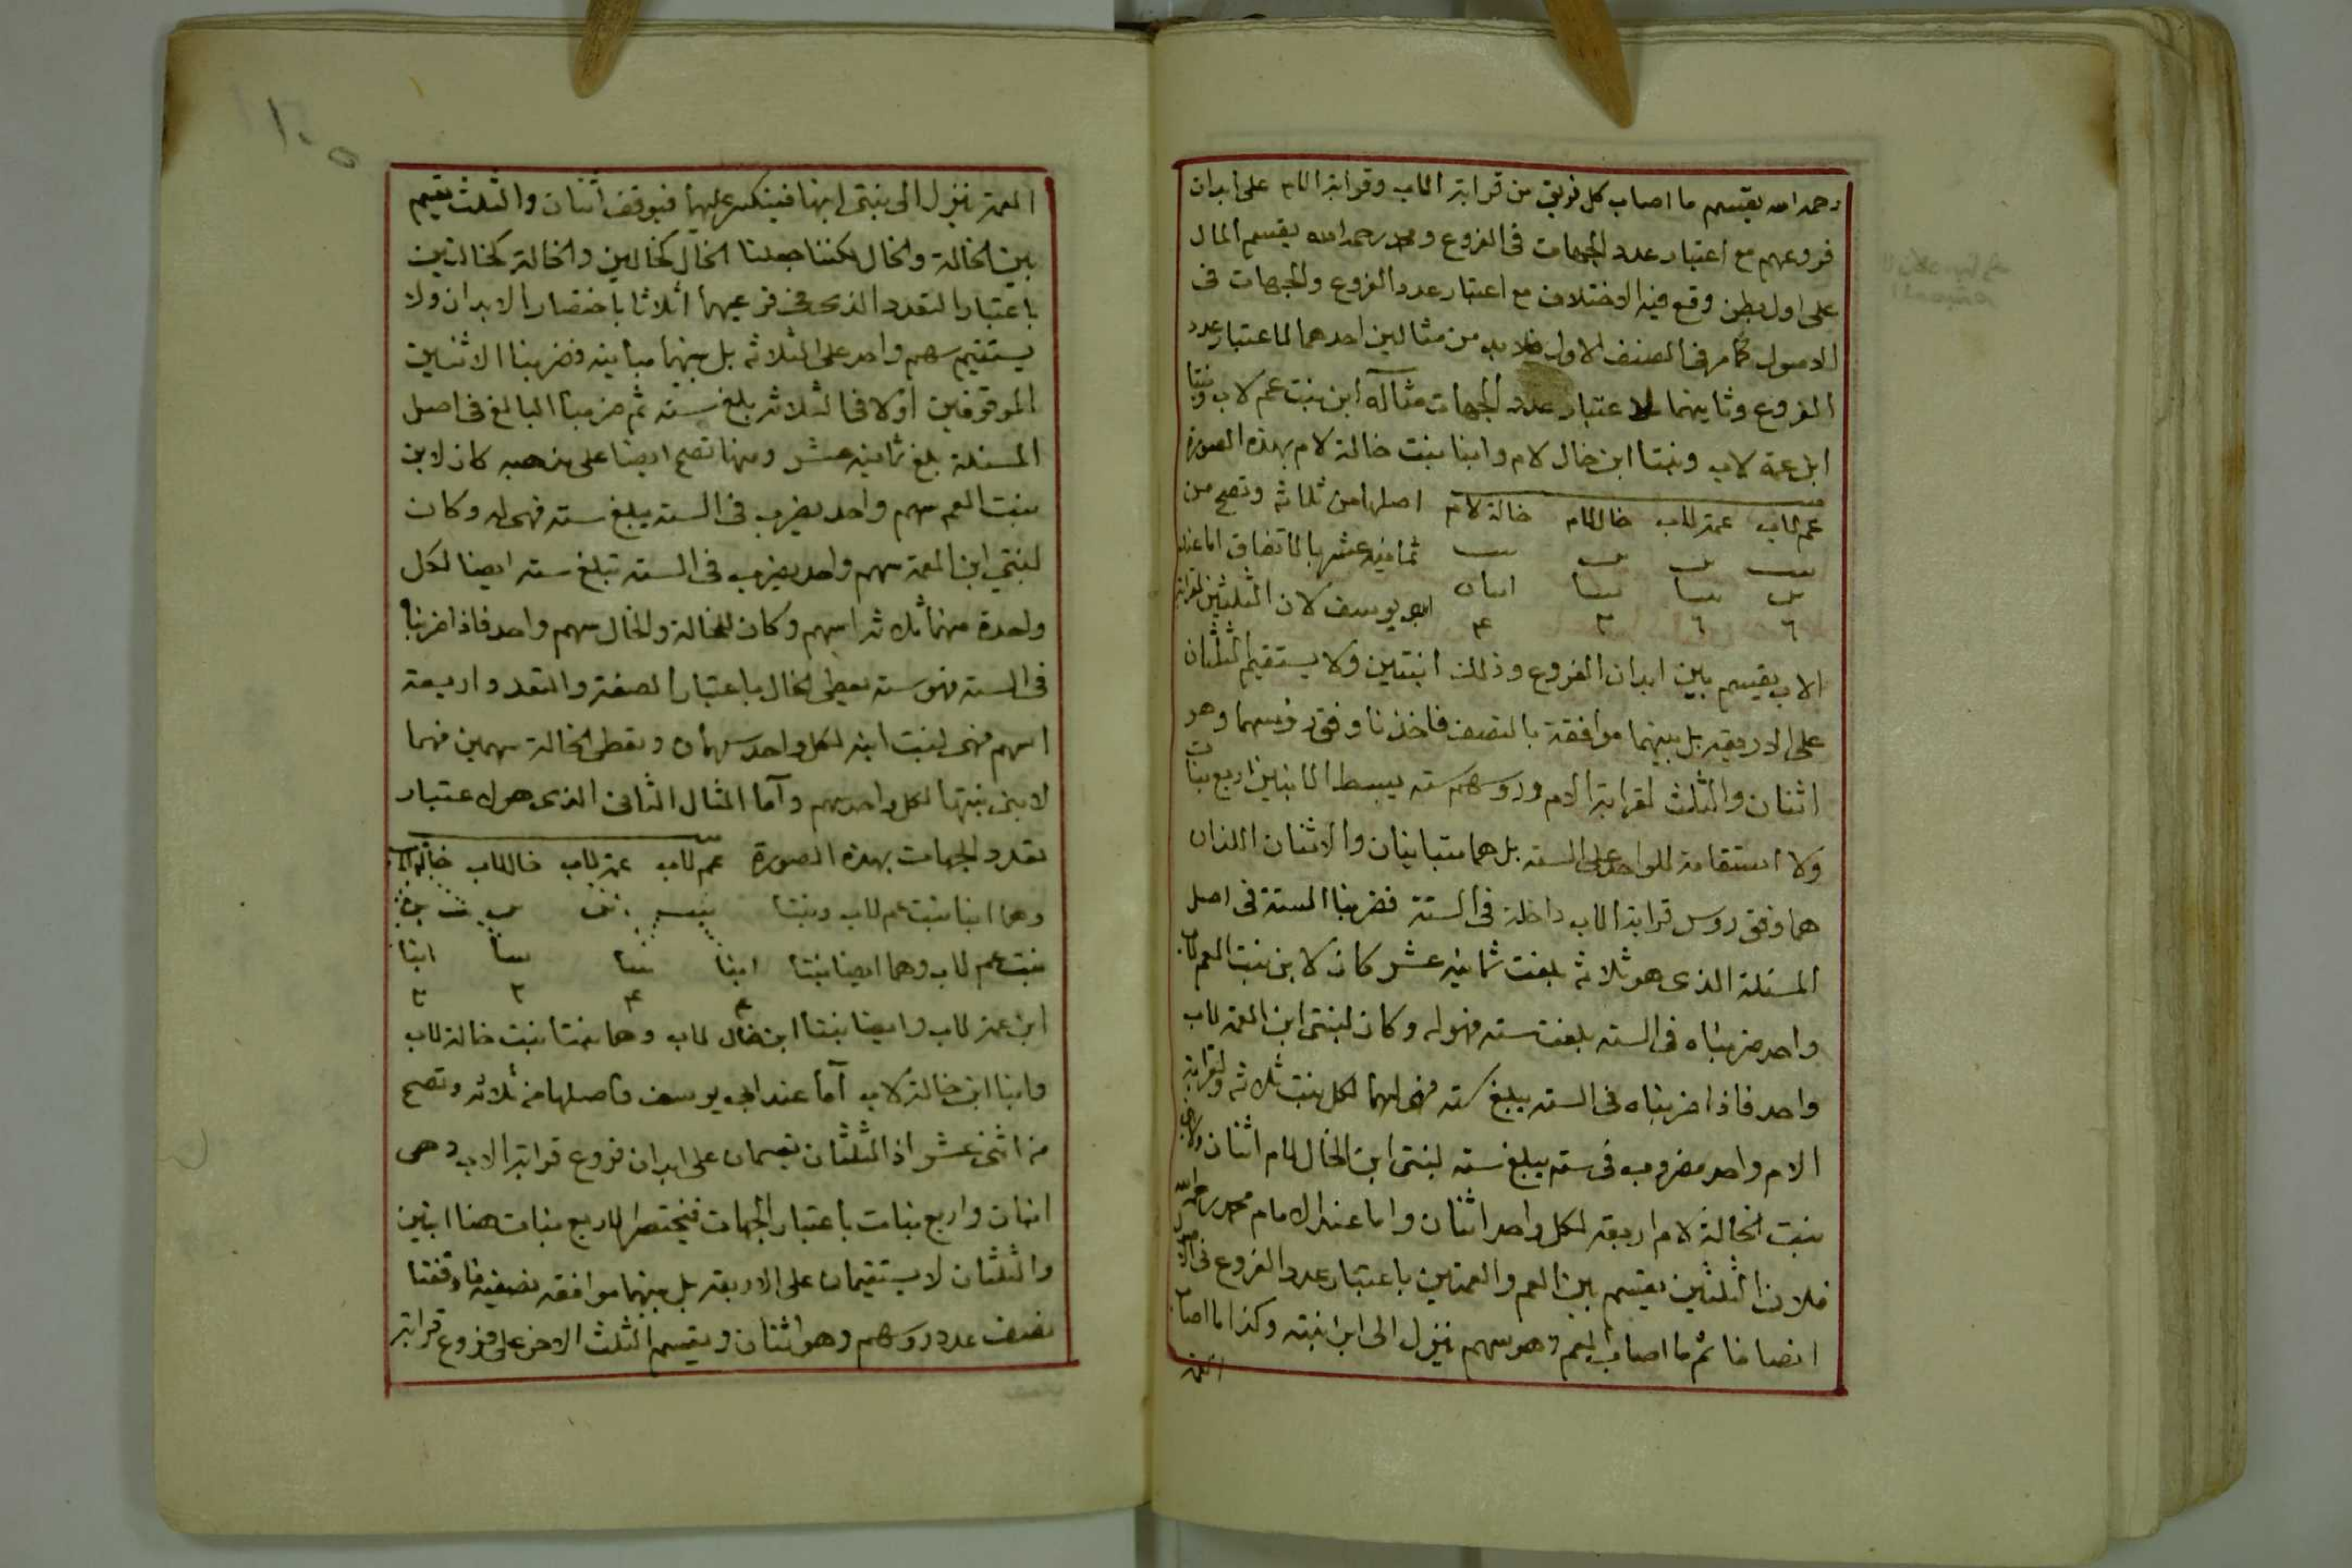 رحمه الله يقسم ما اصاب كل فريق من قرابة الاب وقرابة الام على ابدان
فروعهم مع اعتبار عدد الجهات فى الفروع ومحمد رحمه الله يقسم المال
على اول بطن وقع فيه الاختلاف مع اعتبار عدد الفروع والجهات فى
الاصول كما مر فى الصنف الاول فلا بد من مثالين احدهما لما اعتبار عدد
الفروع وثانيهما لاعتبار عدد الجهات مثاله ابن بنت عم لاب وبنتا
ابن عمة لاب وبنتا ابن خال لام وابنا بنت خالة لام بهذه الصورة
عم لاب عمة لاب خال لام خالة لام اصلها من ثلاثة وتصح من
بنت ابن ابن بنت ثمانية عشر بالاتفاق اما عند
ابن بنتا بنتا ابنان ابى يوسف لان الثلثين لقرابة
٦ ٦ ٣ ۴
الاب يقسم بين ابدان الفروع وذلك ابنتين ولا يستقيم الثلثان
على الاربعة بل بينهما موافقة بالنصف فاخذنا وفق رؤسهما وهو
اثنان والثلث لقرابة الام ورؤسهم ستة يبسط الابنين اربع بنات
ولا استقامة للواحد على الستة بل هما متباينان والاثنان اللذان
هما وفق روس قرابة الاب داخلة فى الستة فضربنا الستة فى اصل
المسئلة الذى هو ثلاثة بلغت ثمانية عشر كان لابن بنت العم لاب
واحد ضربناه فى الستة بلغت ستة فهو له وكان لبنتى ابن العمة لاب
واحد فاذا ضربناه فى الستة يبلغ ستة فهى لهما لكل بنت ثلاثة ولقرابة
الام واحد مضروب فى ستة يبلغ ستة لبنتى ابن الخال لام اثنان ولابنى
بنت الخالة لام اربعة لكل واحد اثنان واما عند الامام محمد رحمه الله
فلان الثلثين يقسم بين العم والعمتين باعتبار عدد الفروع فى الاصول
انصافا ثم ما اصاب العم وهو سهم ينزل الى ابن ابنته وكذا ما اصاب
العمة
١٠٥
العمة ينزل الى بنتى ابنها فينكسر عليهما فيوقف اثنان والثلث يقسم
بين الخالة والخال لكننا جعلنا الخال كخالين والخالة كخالتين
باعتبار التعدد الذى فى فرعيهما اثلاثا باختصار الابدان ولا
يستقيم سهم واحد على الثلاثة بل بينهما مباينة فضربنا الاثنين
الموقوفين اولا فى الثلاثة بلغ ستة ثم ضربنا البالغ فى اصل
المسئلة بلغ ثمانية عشر ومنها تصح ايضا على مذهبه كان لابن
بنت العم سهم واحد يضرب فى الستة يبلغ ستة فهى له وكان
لبنتى ابن العمة سهم واحد يضرب فى الستة تبلغ ستة ايضا لكل
واحدة منهما ثلاثة اسهم وكان للخالة والخال سهم واحد فاذا ضربنا
فى الستة فهو ستة يعطى الخال باعتبار الصفة والتعدد اربعة
اسهم فهى لبنت ابنه لكل واحد سهمان ويعطى الخالة سهمين فهما
لابنى بنتها لكل واحد سهم وآما المثال الثانى الذى هو لاعتبار
تعدد الجهات بهذه الصورة عم لاب عمة لاب خال لاب خالة لاب
وهما ابنا بنت عم لاب وبنتا بنت ابن ابن بنت ابن
بنت عم لاب وهما ايضا بنتا ابنا بنتا بنتا ابنا
۴ ۴ ٢ ٢
ابن عمة لاب وايضا بنتا ابن خال لاب وهما بنتا بنت خالة لاب
وابنا ابن خالة لاب آما عند ابى يوسف فاصلها من ثلاثة وتصح
من اثنى عشر اذ الثلثان تقسمان على ابدان فروع قرابة الاب وهى
ابنان واربع بنات باعتبار الجهات فيختصر الاربع بنات هنا ابنين
والثلثان لا يستقيمان على الاربعة بل بينهما موافقة نصفية فاوقفنا
نصف عدد روسهم وهو اثنان ويقسم الثلث الاخر على فروع قرابة